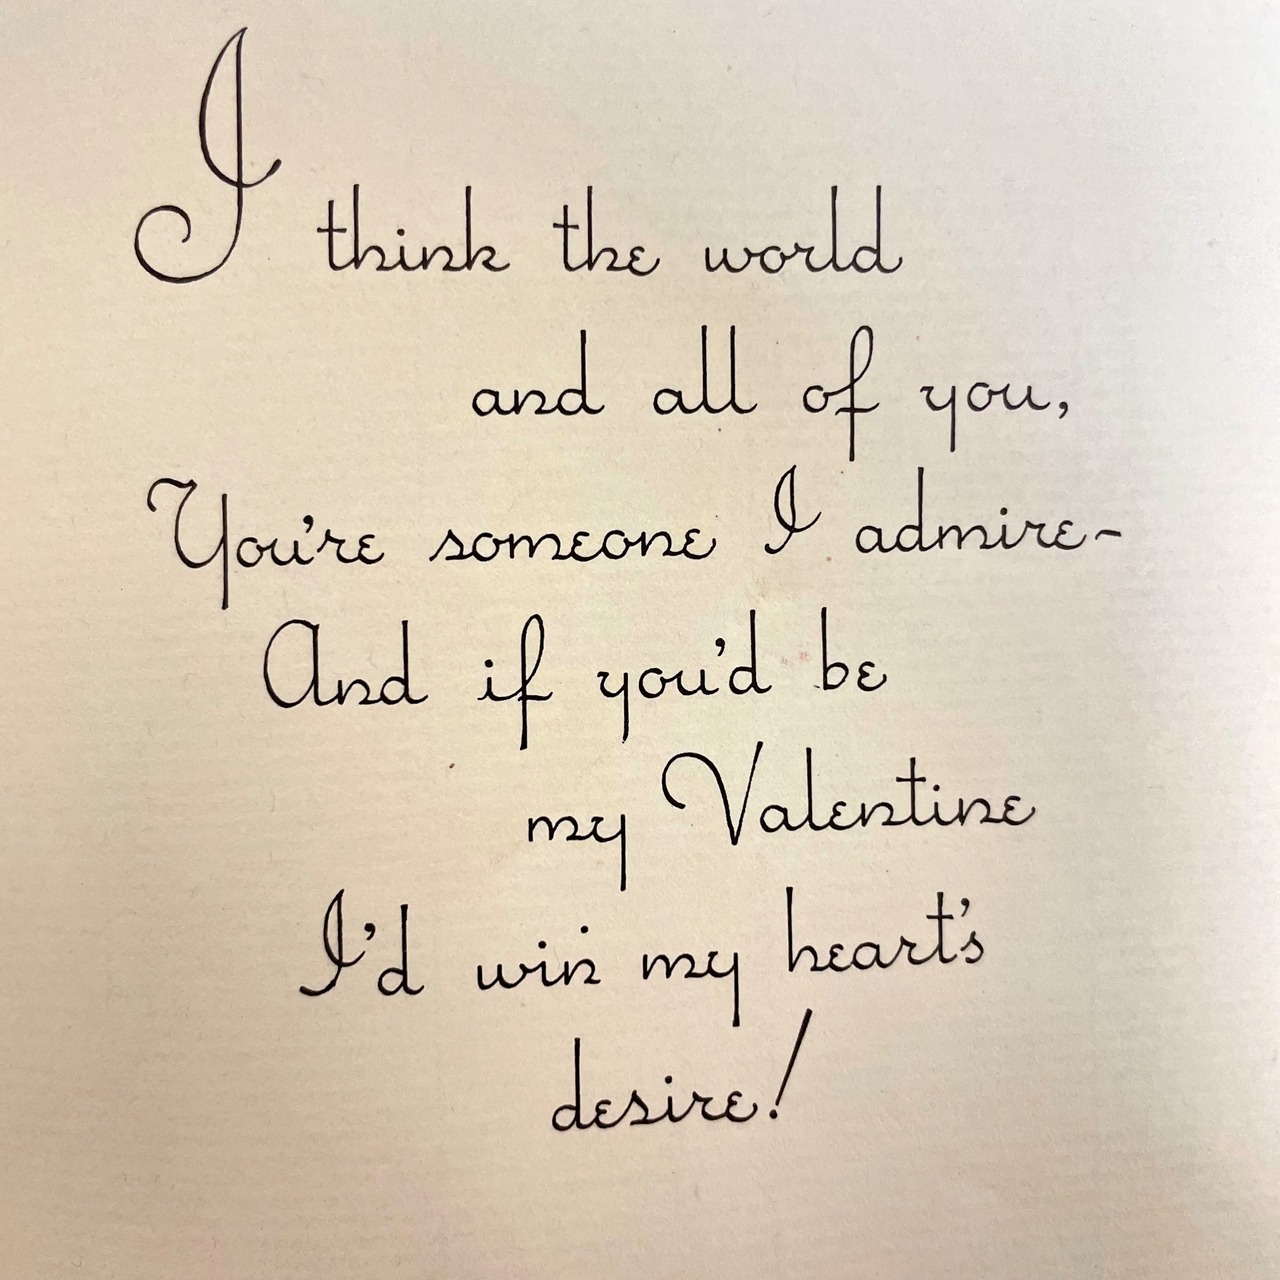 I think the world
and all of you,
You're someone I admire-
And if you'd be
my Valentine
I'd win my heart's
desire!